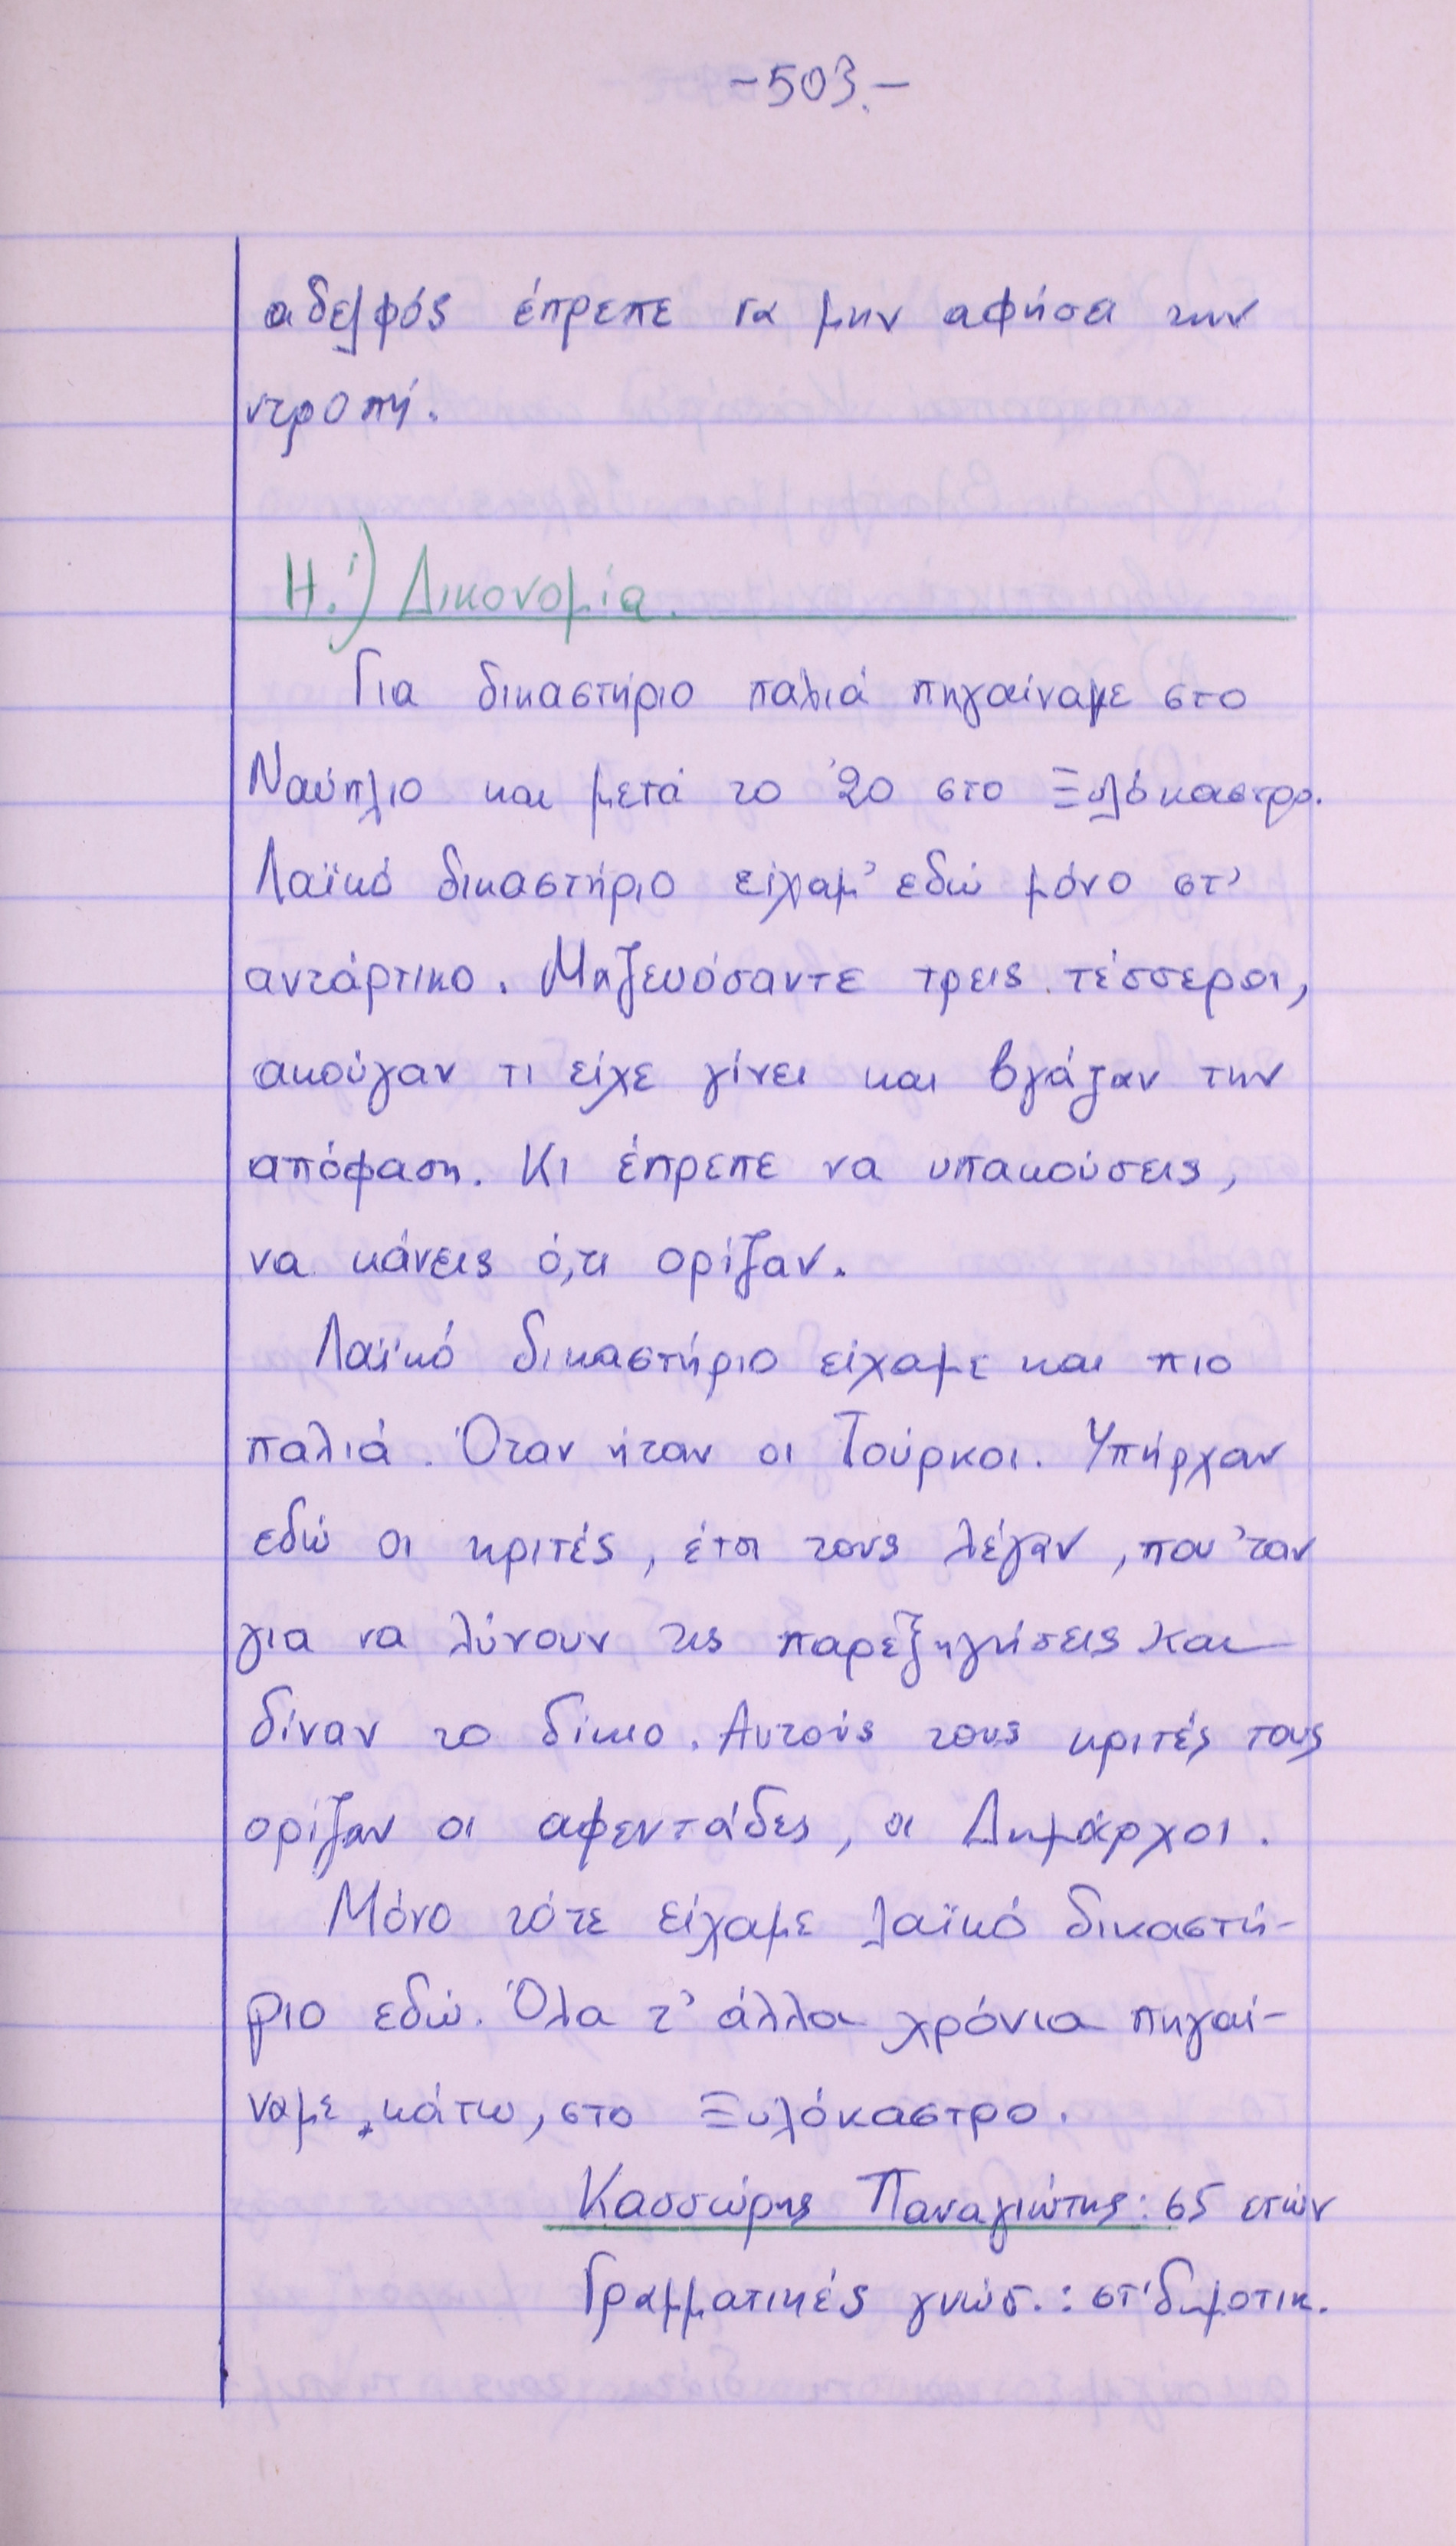 -503.-
αδελφός έπρεπε να μην αφήσει την
ντροπή.
Η.') Δικονομία.
Για δικαστήριο παλιά πηγαίναμε στο
Ναύπλιο και μετά το '20 στο Ξυλόκαστρο.
Λαϊκό δικαστήριο είχαμ' εδώ μόνο στ'
αντάρτικο. Μαζευόσαντε τρεις τέσσεροι,
ακούγαν τι είχε γίνει και βγάζαν την
απόφαση. Κι έπρεπε να υπακούσεις,
να κάνεις ό,τι ορίζαν.
Λαϊκό δικαστήριο είχαμε και πιο
παλιά. Όταν ήταν οι Τούρκοι. Υπήρχαν
εδώ οι κριτές, έτσι τους λέγαν, που 'ταν
για να λύνουν τις παρεξηγήσεις και
δίναν το δίκιο. Αυτούς τους κριτές τους
ορίζαν οι αφεντάδες, οι Δημάρχοι.
Μόνο τότε είχαμε λαϊκό δικαστή-
ριο εδώ. Όλα τ' άλλα χρόνια πηγαί-
ναμε, κάτω, στο Ξυλόκαστρο.
Κασσώρης Παναγιώτης: 65 ετών
Γραμματικές γνώσ.: στ' δημοτικ.